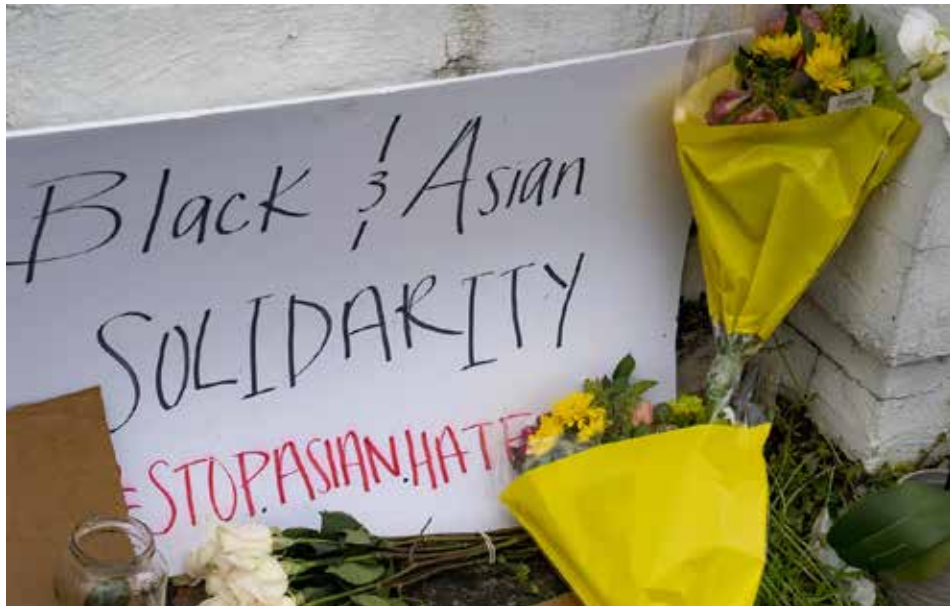 Black & Asian
SOLIDARITY
#STOP.ASIAN.HATE